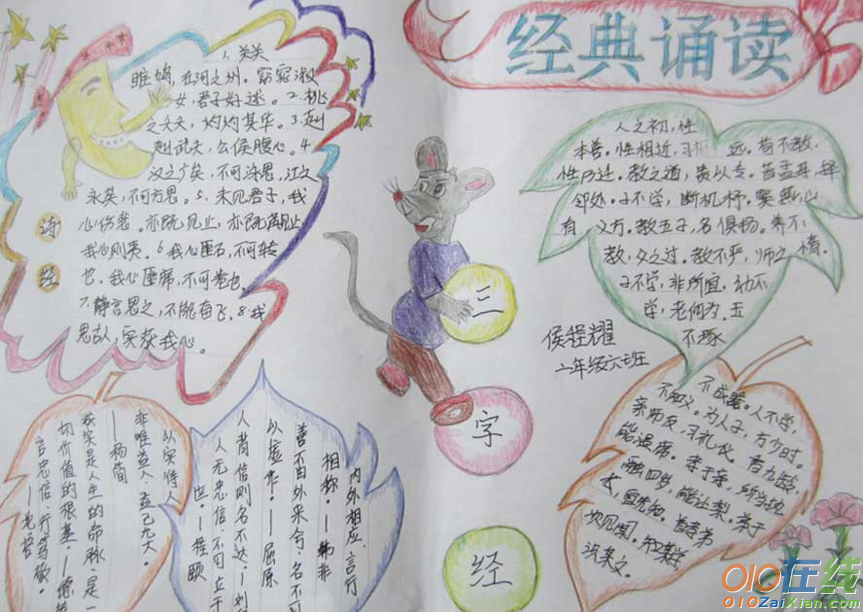 经典诵读
诗
经
1.关关
雎鸠,在河之洲。窈窕淑
女,君子好逑。2.桃
之夭夭,灼灼其华。3.赳
赳武夫,公侯腹心。4.
汉之广矣,不可泳思,江之
永矣,不可方思。5.未见君子,我
心伤悲。亦既见止,亦既觏止,
我心则夷。6.我心匪石,不可转
也,我心匪席,不可卷也
7.静言思之,不能奋飞。8.我
思古人,实获我心。
三
字
经
人之初,性
本善。性相近,习相远。苟不教,
性乃迁。教之道,贵以专。昔孟母,择
邻处。子不学,断机杼。窦燕山
有义方,教五子,名俱扬。养不
教,父之过。教不严,师之惰。
子不学,非所宜。幼不
学,老何为。玉
不琢
侯程耀
二年级六班
不成器。人不学,
不知义。为人子,方少时。
亲师友,习礼仪。香九龄,
能温席。孝于亲,所当执
融四岁,能让梨。弟于
长,宜先知。首孝弟
次见闻。知某数
识某文。
内外相应,言行
相称。——韩非
善不由外来兮,名不可
以虚作。——屈原
人背信则名不达。——刘
人无忠信,不可立于
世。——程颐
以实待人
非唯益人,益己尤大。
——杨简
诚实是人生的命脉,是一
切价值的根基。——德
言忠信,行笃敬。
——孔子
010在线
010ZaiXian.com